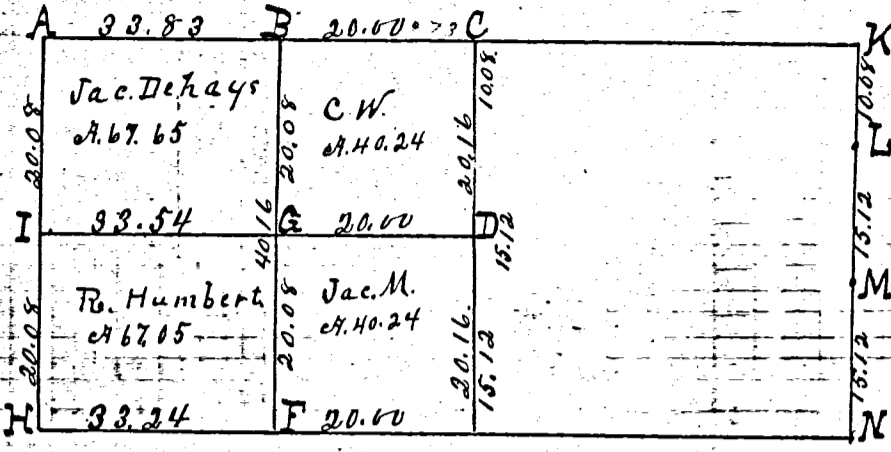 A 33.83 B 20.00 C K
Jac. Dehays
A. 67.65
20.08
20.08
C. W.
A. 40.24
20.16
10.08
10.08
L
I 33.54 G 20.00 D
40.16
15.12
15.12
M
R. Humbert
A 67.05
20.08
20.08
Jac. M.
A. 40.24
20.16.
15.12
15.12
H 33.24 F 20.00 N